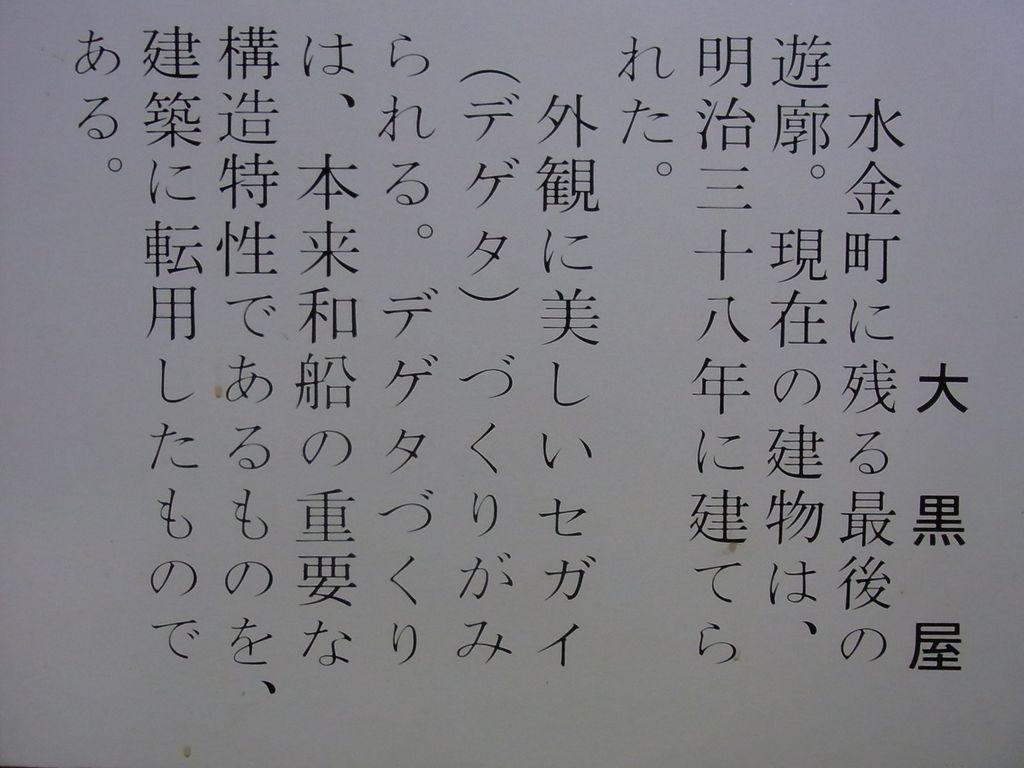 大黒屋
水金町に残る最後の
遊廓。現在の建物は、
明治三十八年に建てら
れた。
外観に美しいセガイ
(デゲタ)づくりがみ
られる。デゲタづくり
は、本来和船の重要な
構造特性であるものを、
建築に転用したもので
ある。